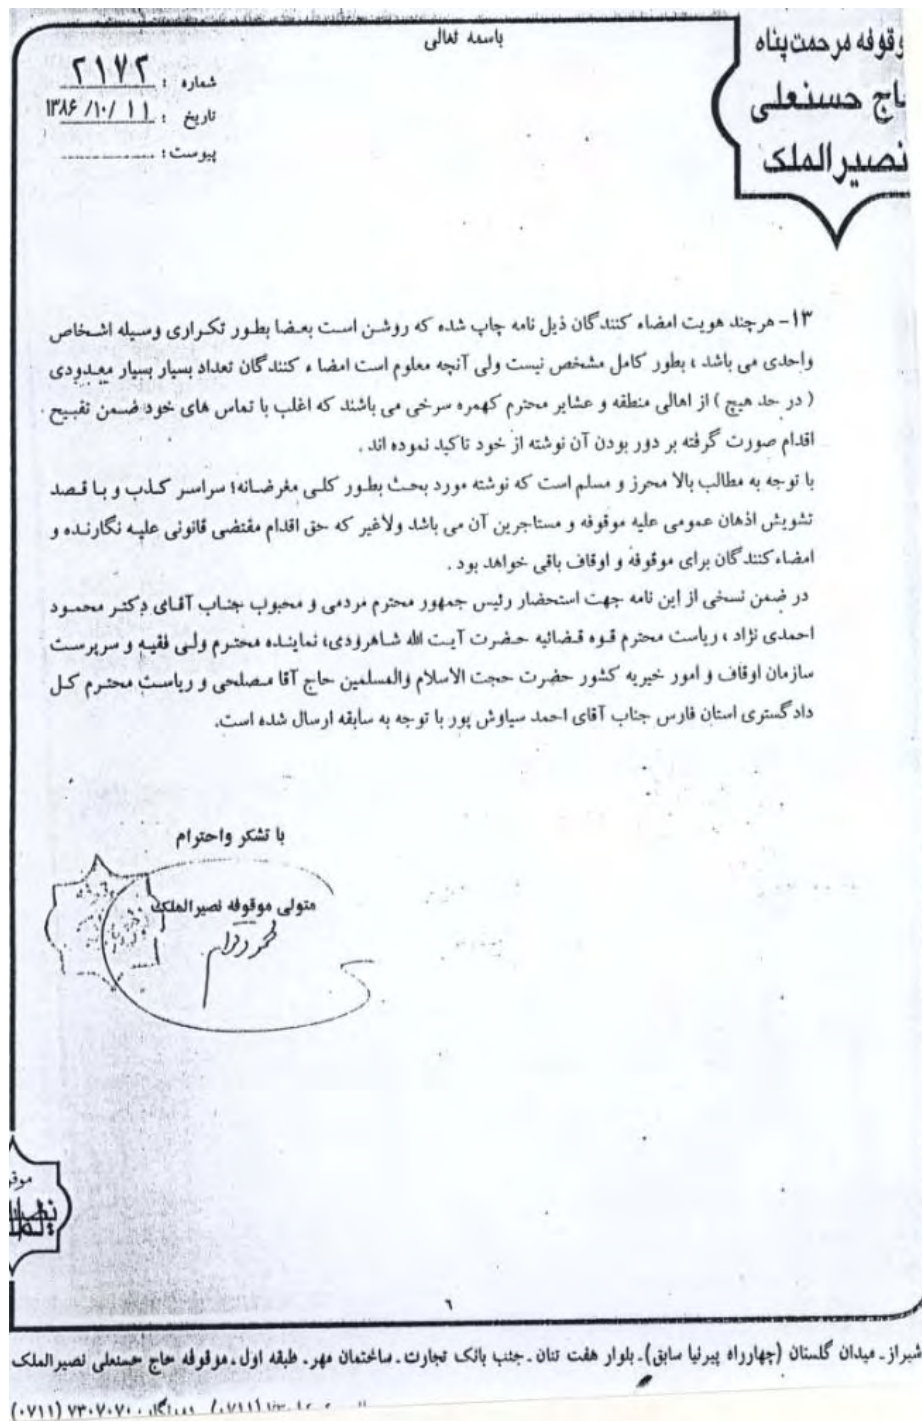 باسمه تعالی
وقوفه مرحمت‌پناه
حاج حسنعلی
نصیرالملک
شماره : ۲۱۷۲
تاریخ : ۱۳۸۶/۱۰/۱۱
پیوست :
۱۳- هرچند هویت امضاء کنندگان ذیل نامه چاپ شده که روشن است بعضا بطور تکراری وسیله اشخاص
واحدی می باشد ، بطور کامل مشخص نیست ولی آنچه معلوم است امضاء کنندگان تعداد بسیار بسیار معدودی
( در حد هیچ ) از اهالی منطقه و عشایر محترم کهمره سرخی می باشند که اغلب با تماس های خود ضمن تقبیح
اقدام صورت گرفته بر دور بودن آن نوشته از خود تاکید نموده اند .
با توجه به مطالب بالا محرز و مسلم است که نوشته مورد بحث بطور کلی مغرضانه؛ سراسر کذب و با قصد
تشویش اذهان عمومی علیه موقوفه و مستاجرین آن می باشد ولاغیر که حق اقدام مقتضی قانونی علیه نگارنده و
امضاءکنندگان برای موقوفه و اوقاف باقی خواهد بود .
در ضمن نسخی از این نامه جهت استحضار رئیس جمهور محترم مردمی و محبوب جناب آقای دکتر محمود
احمدی نژاد ، ریاست محترم قوه قضائیه حضرت آیت الله شاهرودی، نماینده محترم ولی فقیه و سرپرست
سازمان اوقاف و امور خیریه کشور حضرت حجت الاسلام والمسلمین حاج آقا مصلحی و ریاست محترم کل
دادگستری استان فارس جناب آقای احمد سیاوش پور با توجه به سابقه ارسال شده است.
با تشکر واحترام
متولی موقوفه نصیرالملک
۶
شیراز ـ میدان گلستان (چهارراه پیرنیا سابق) ـ بلوار هفت تنان ـ جنب بانک تجارت ـ ساختمان مهر ـ طبقه اول ـ موقوفه حاج حسنعلی نصیرالملک
(۰۷۱۱) ۷۳۰۷۰۷۰